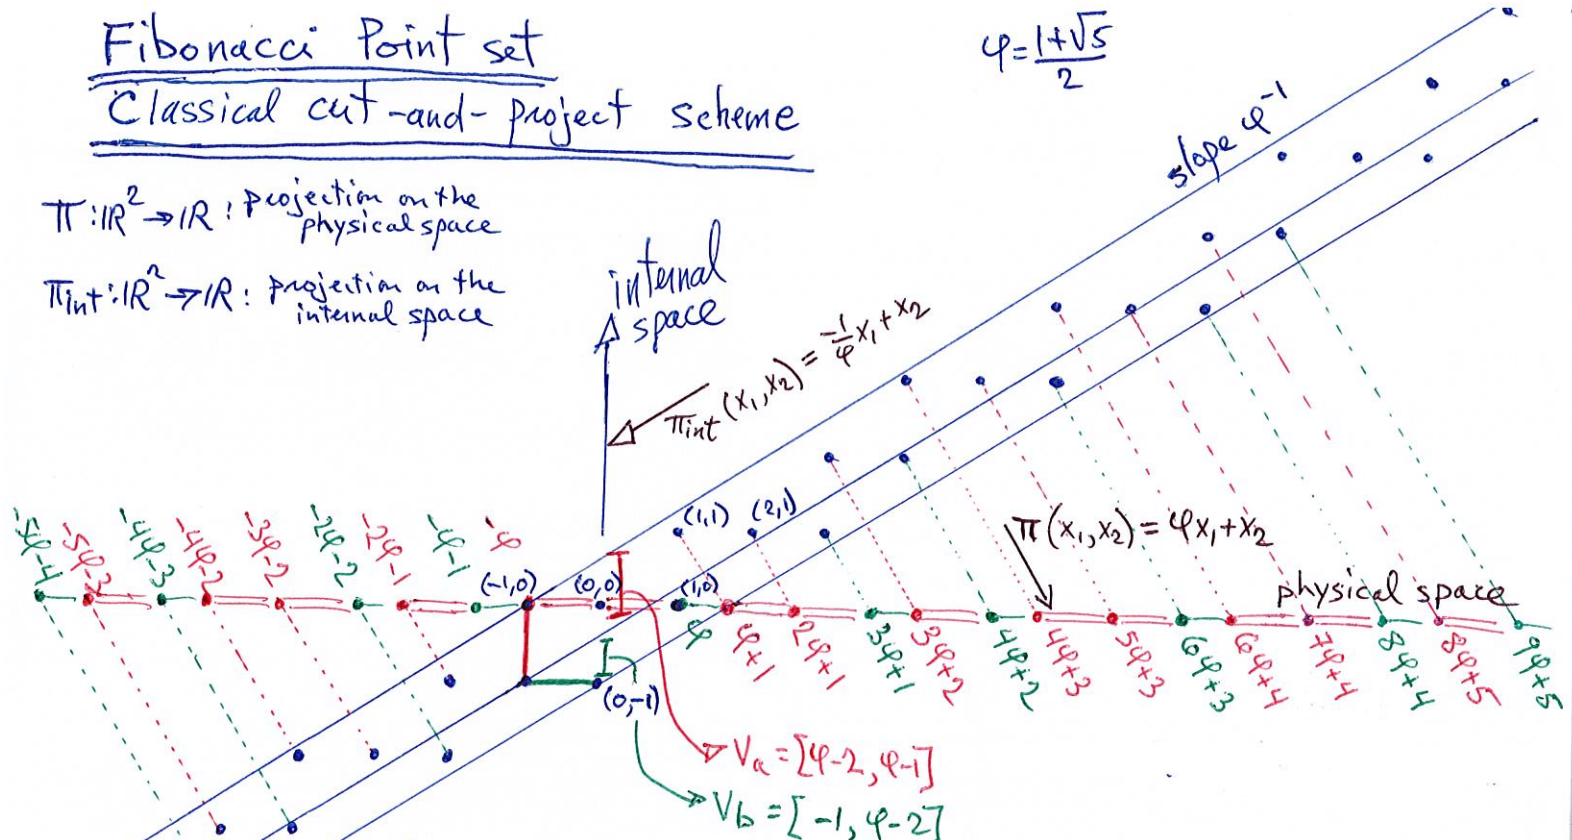 Fibonacci Point set
Classical cut-and-project scheme
φ=1+√5/2
π:ℝ²→ℝ: projection on the
physical space
πint:ℝ²→ℝ: projection on the
internal space
internal
space
slope φ⁻¹
πint(x₁,x₂)=-1/φx₁+x₂
π(x₁,x₂)=φx₁+x₂
physical space
(1,1) (2,1)
(-1,0) (0,0) (1,0)
(0,-1)
-5φ-4 -5φ-3 -4φ-3 -4φ-2 -3φ-2 -2φ-2 -2φ-1 -φ-1 -φ
φ φ+1 2φ+1 3φ+1 3φ+2 4φ+2 4φ+3 5φ+3 6φ+3 6φ+4 7φ+4 8φ+4 8φ+5 9φ+5
Va=[φ-2,φ-1]
Vb=[-1,φ-2]